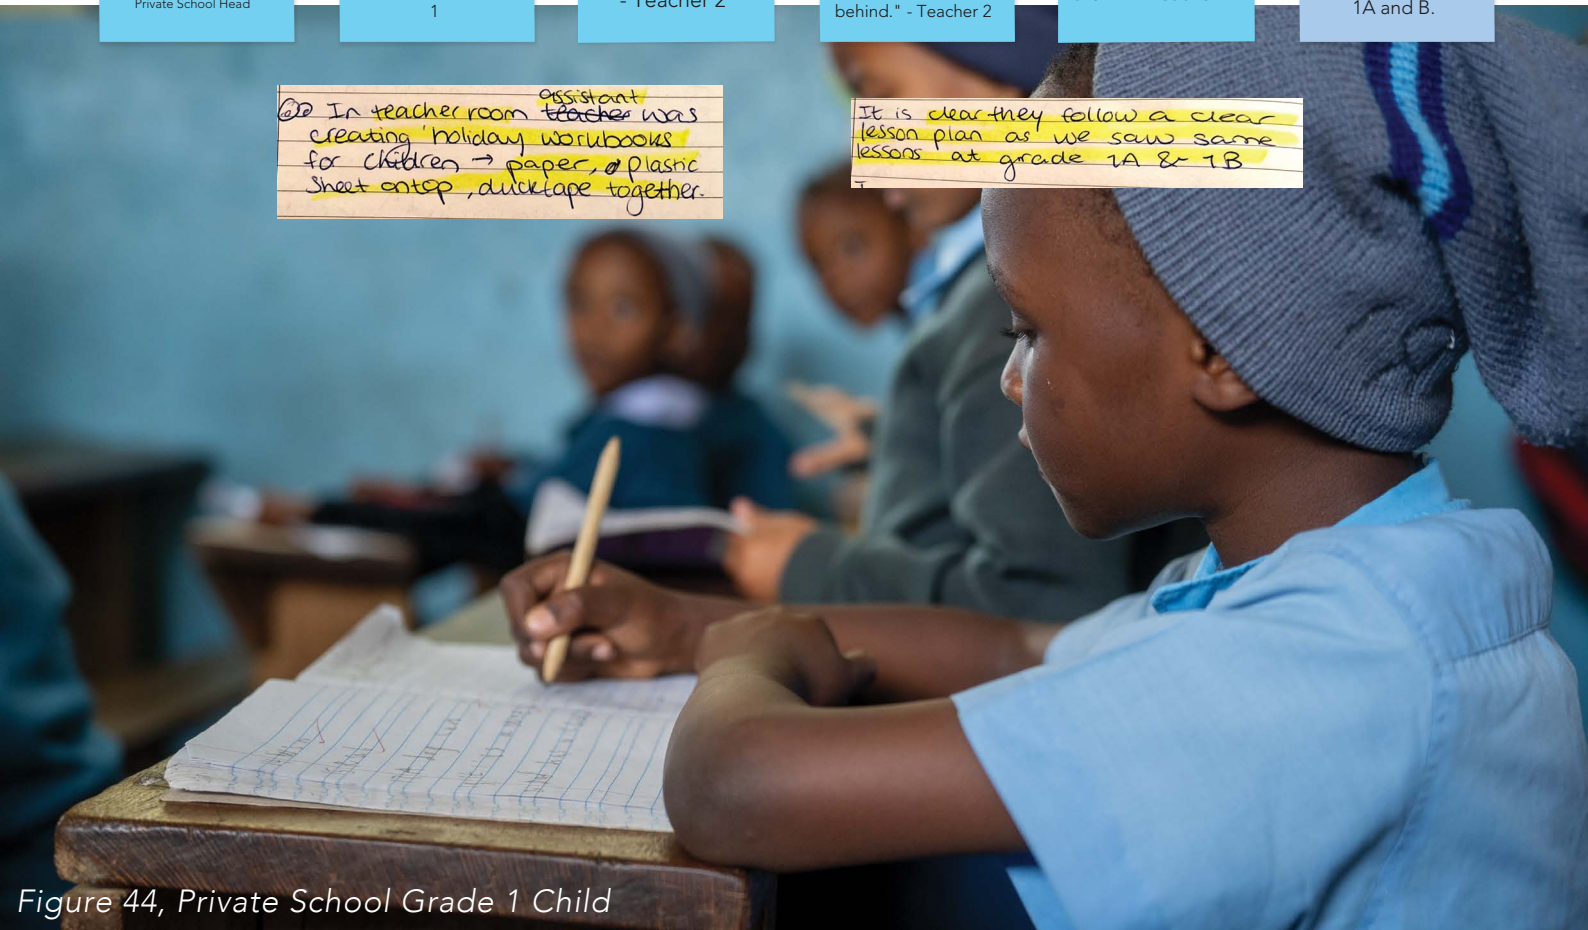 Private School Head
1
- Teacher 2
behind." - Teacher 2
1A and B.
assistant
In teacher room teacher was
creating 'holiday workbooks
for children → paper, plastic
Sheet ontop, ducktape together.
It is clear they follow a clear
lesson plan as we saw same
lessons at grade 1A & 1B
Figure 44, Private School Grade 1 Child